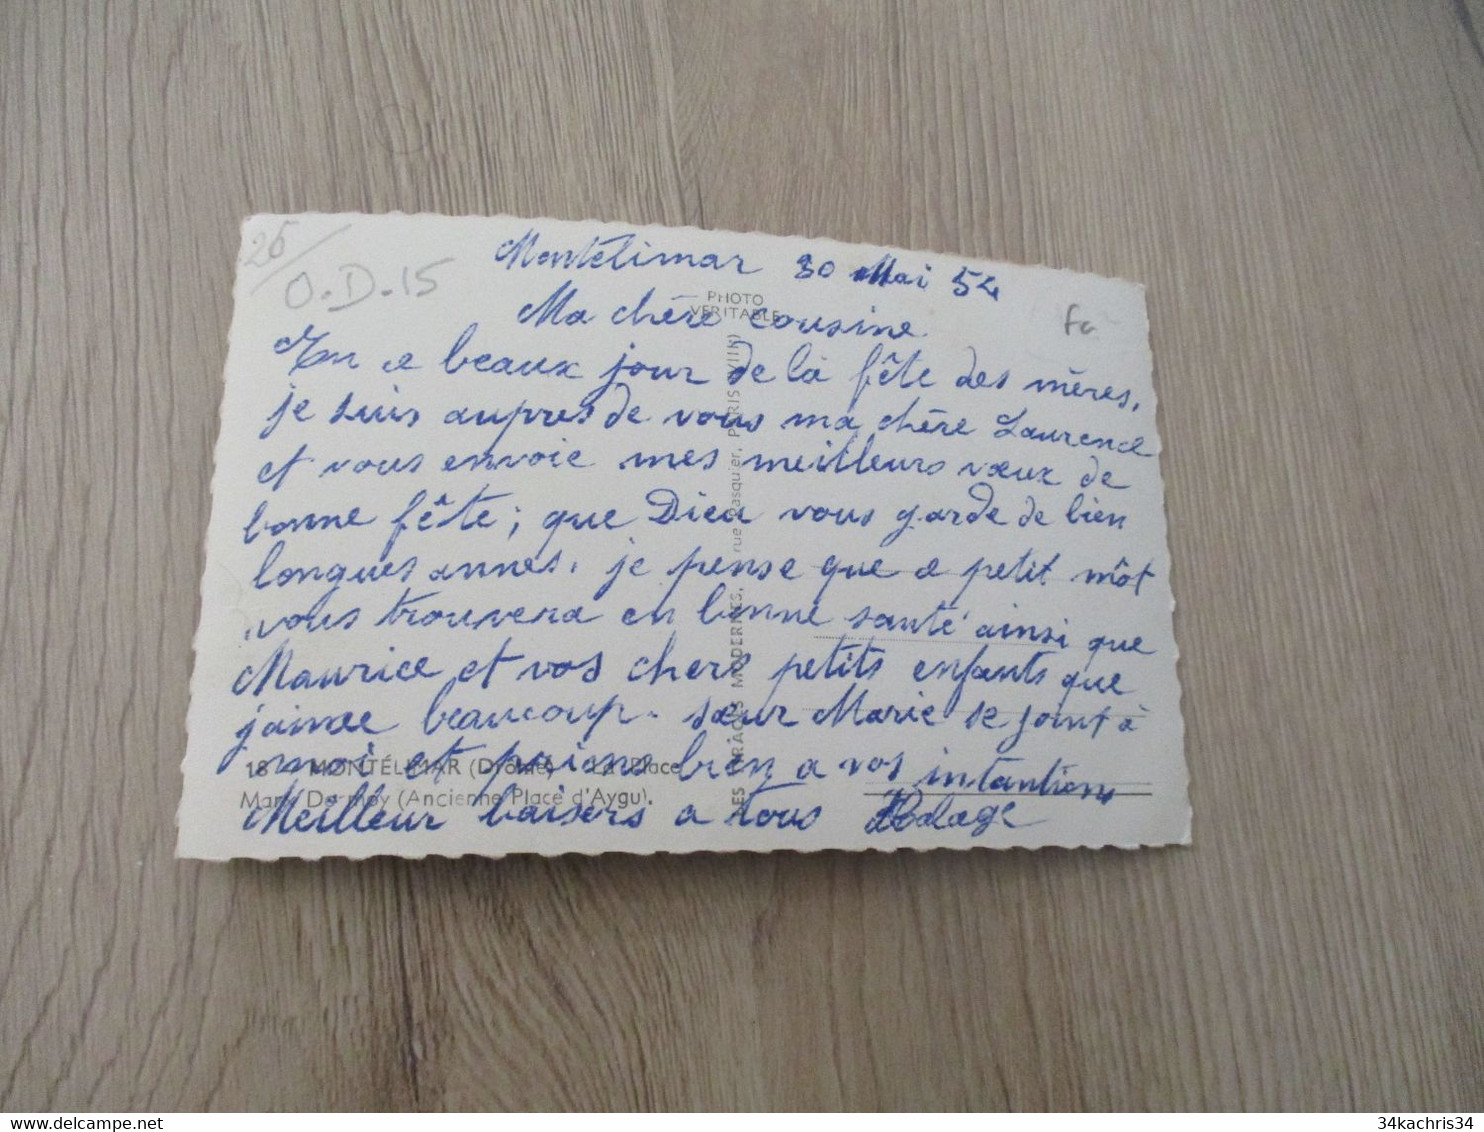 26
O.D.15
Montélimar 30 Mai 54
PHOTO
VERITABLE
Ma chère cousine
En ce beaux jour de là fête des mères,
je suis aupres de vous ma chère Laurence
et vous envoie mes meilleurs vœux de
bonne fête; que Dieu vous garde de bien
longues annes. je pense que ce petit môt
vous trouvera en bonne santé ainsi que
Maurice et vos chers petits enfants que
j'aimee beaucoup. sœur Marie se joint à
moi et prions bien a vos intantions
Meilleur baisers a tous
18 - MONTÉLIMAR (Drôme) - La Place
Marx Dormoy (Ancienne Place d'Aygu).
MODERNES, rue Pasquier, PARIS (VIII)
34kachris34
delcampe.net